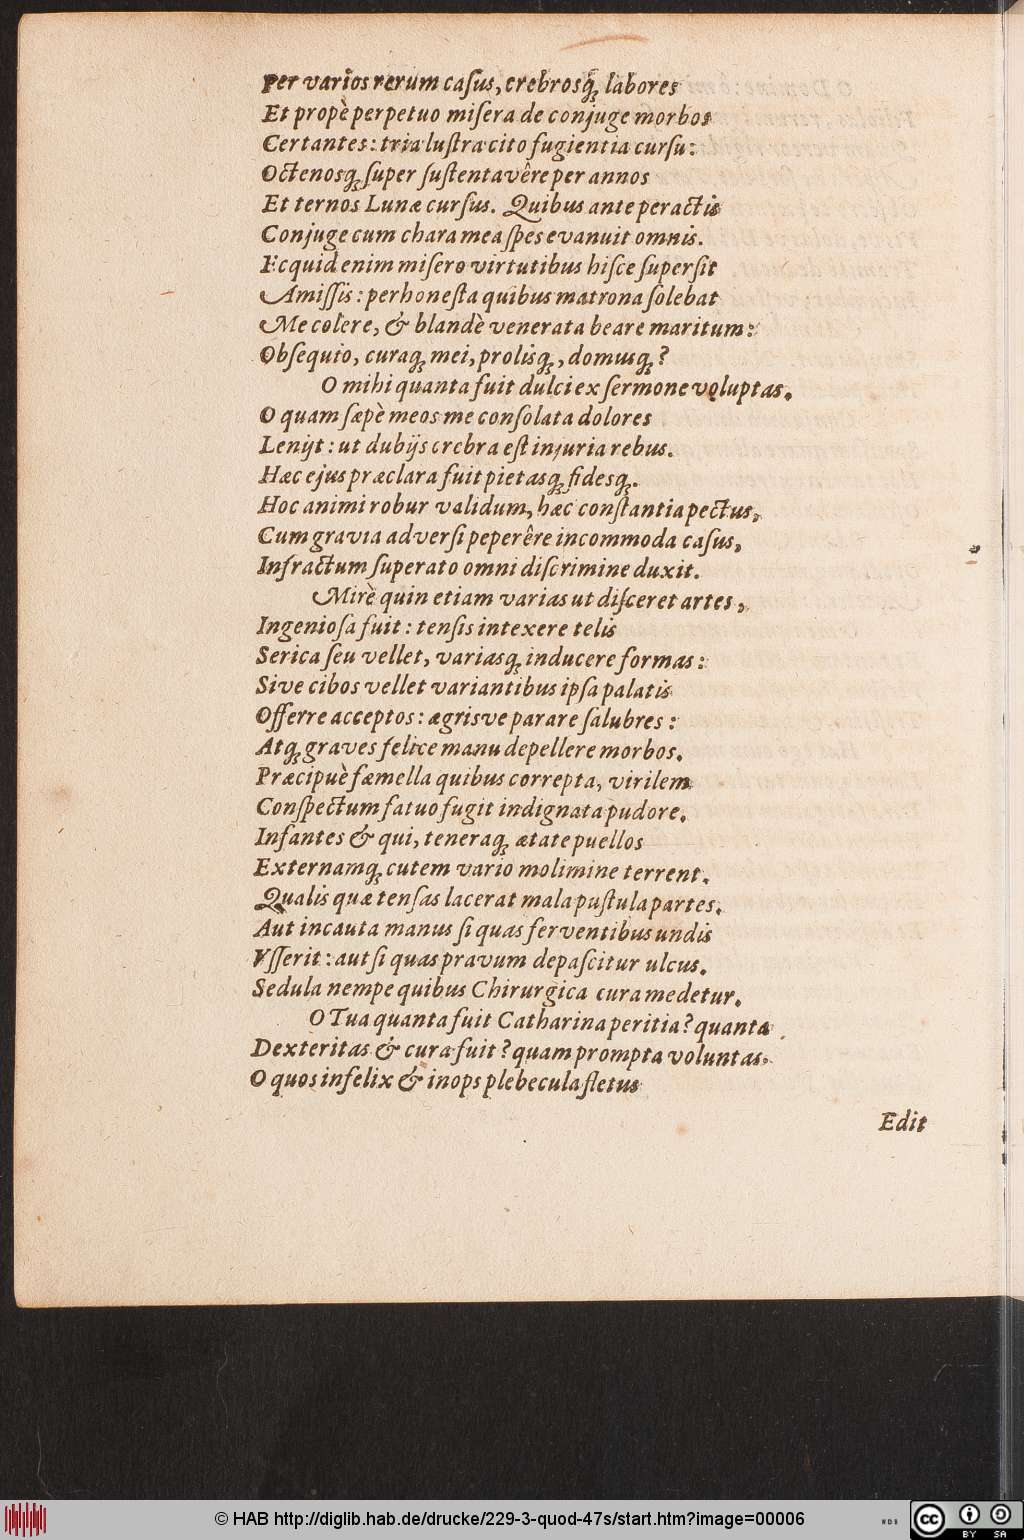 Per varios rerum caſus, crebrosq́; labores
Et propè perpetuo miſera de conjuge morbos
Certantes: tria luſtra cito fugientia curſu:
Octenosq; ſuper ſuſtentavêre per annos
Et ternos Lunæ curſus. Quibus ante peractis
Conjuge cum chara mea ſpes evanuit omnis.
Ecquid enim miſero virtutibus hiſce ſuperſit
Amiſſis: perhoneſta quibus matrona ſolebat
Me colere, & blandè venerata beare maritum:
Obſequio, curaq; mei, prolisq;, domusq;?
O mihi quanta fuit dulci ex ſermone voluptas.
O quam ſæpè meos me conſolata dolores
Lenijt: ut dubijs crebra eſt injuria rebus.
Hæc ejus præclara fuit pietasq; fidesq;.
Hoc animi robur validum, hæc conſtantia pectus,
Cum gravia adverſi peperêre incommoda caſus,
Infractum ſuperato omni diſcrimine duxit.
Mirè quin etiam varias ut diſceret artes,
Ingenioſa fuit: tenſis intexere telis
Serica ſeu vellet, variasq; inducere formas:
Sive cibos vellet variantibus ipſa palatis
Offerre acceptos: ægrisve parare ſalubres:
Atq; graves felice manu depellere morbos.
Præcipuè fæmella quibus correpta, virilem
Conſpectum fatuo fugit indignata pudore.
Infantes & qui, teneraq; ætate puellos
Externamq; cutem vario molimine terrent.
Qualis quæ tenſas lacerat mala puſtula partes.
Aut incauta manus ſi quas ferventibus undis
Vſſerit: aut ſi quas pravum depaſcitur ulcus.
Sedula nempe quibus Chirurgica cura medetur.
O Tua quanta fuit Catharina peritia? quanta
Dexteritas & cura fuit? quam prompta voluntas.
O quos infelix & inops plebecula fletus
Edit
© HAB http://diglib.hab.de/drucke/229-3-quod-47s/start.htm?image=00006
cc BY SA